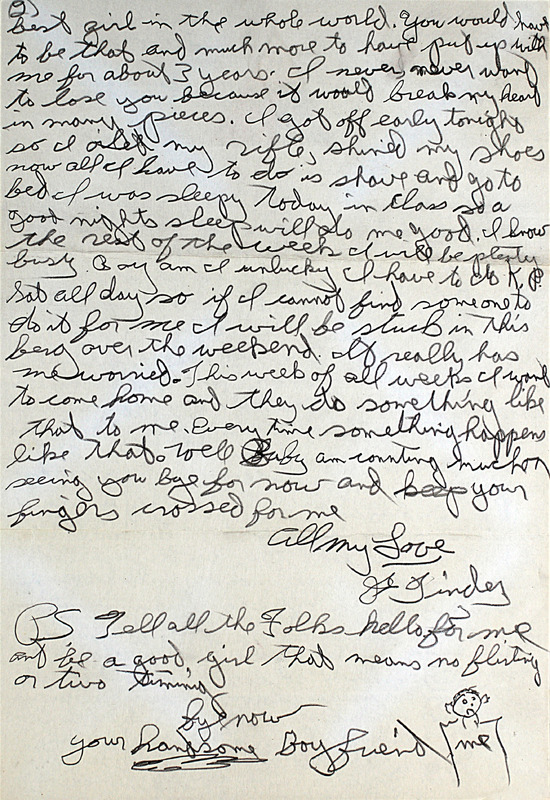 2)
best girl in the whole world. You would have
to be that and much more to have put up with
me for about 3 years. I never never want
to lose you because it would break my heart
in many pieces. I got off early tonight
so I oiled my rifle, shined my shoes
now all I have to do is shave and go to
bed I was sleepy today in class so a
good nights sleep will do me good. I know
the rest of the week I will be plenty
busy. Boy am I unlucky I have to do K.P.
Sat all day so if I cannot find someone to
do it for me I will be stuck in this
berg over the weekend. It really has
me worried. This week of all weeks I want
to come home and they do something like
that to me. Every time something happens
like that. Well Baby am counting much on
seeing you Bye for now and keep your
fingers crossed for me
All my Love
PS Tell all the Folks hello for me
and be a good girl that means no flirting
or two timing
bye now
your handsome Boy friend
me